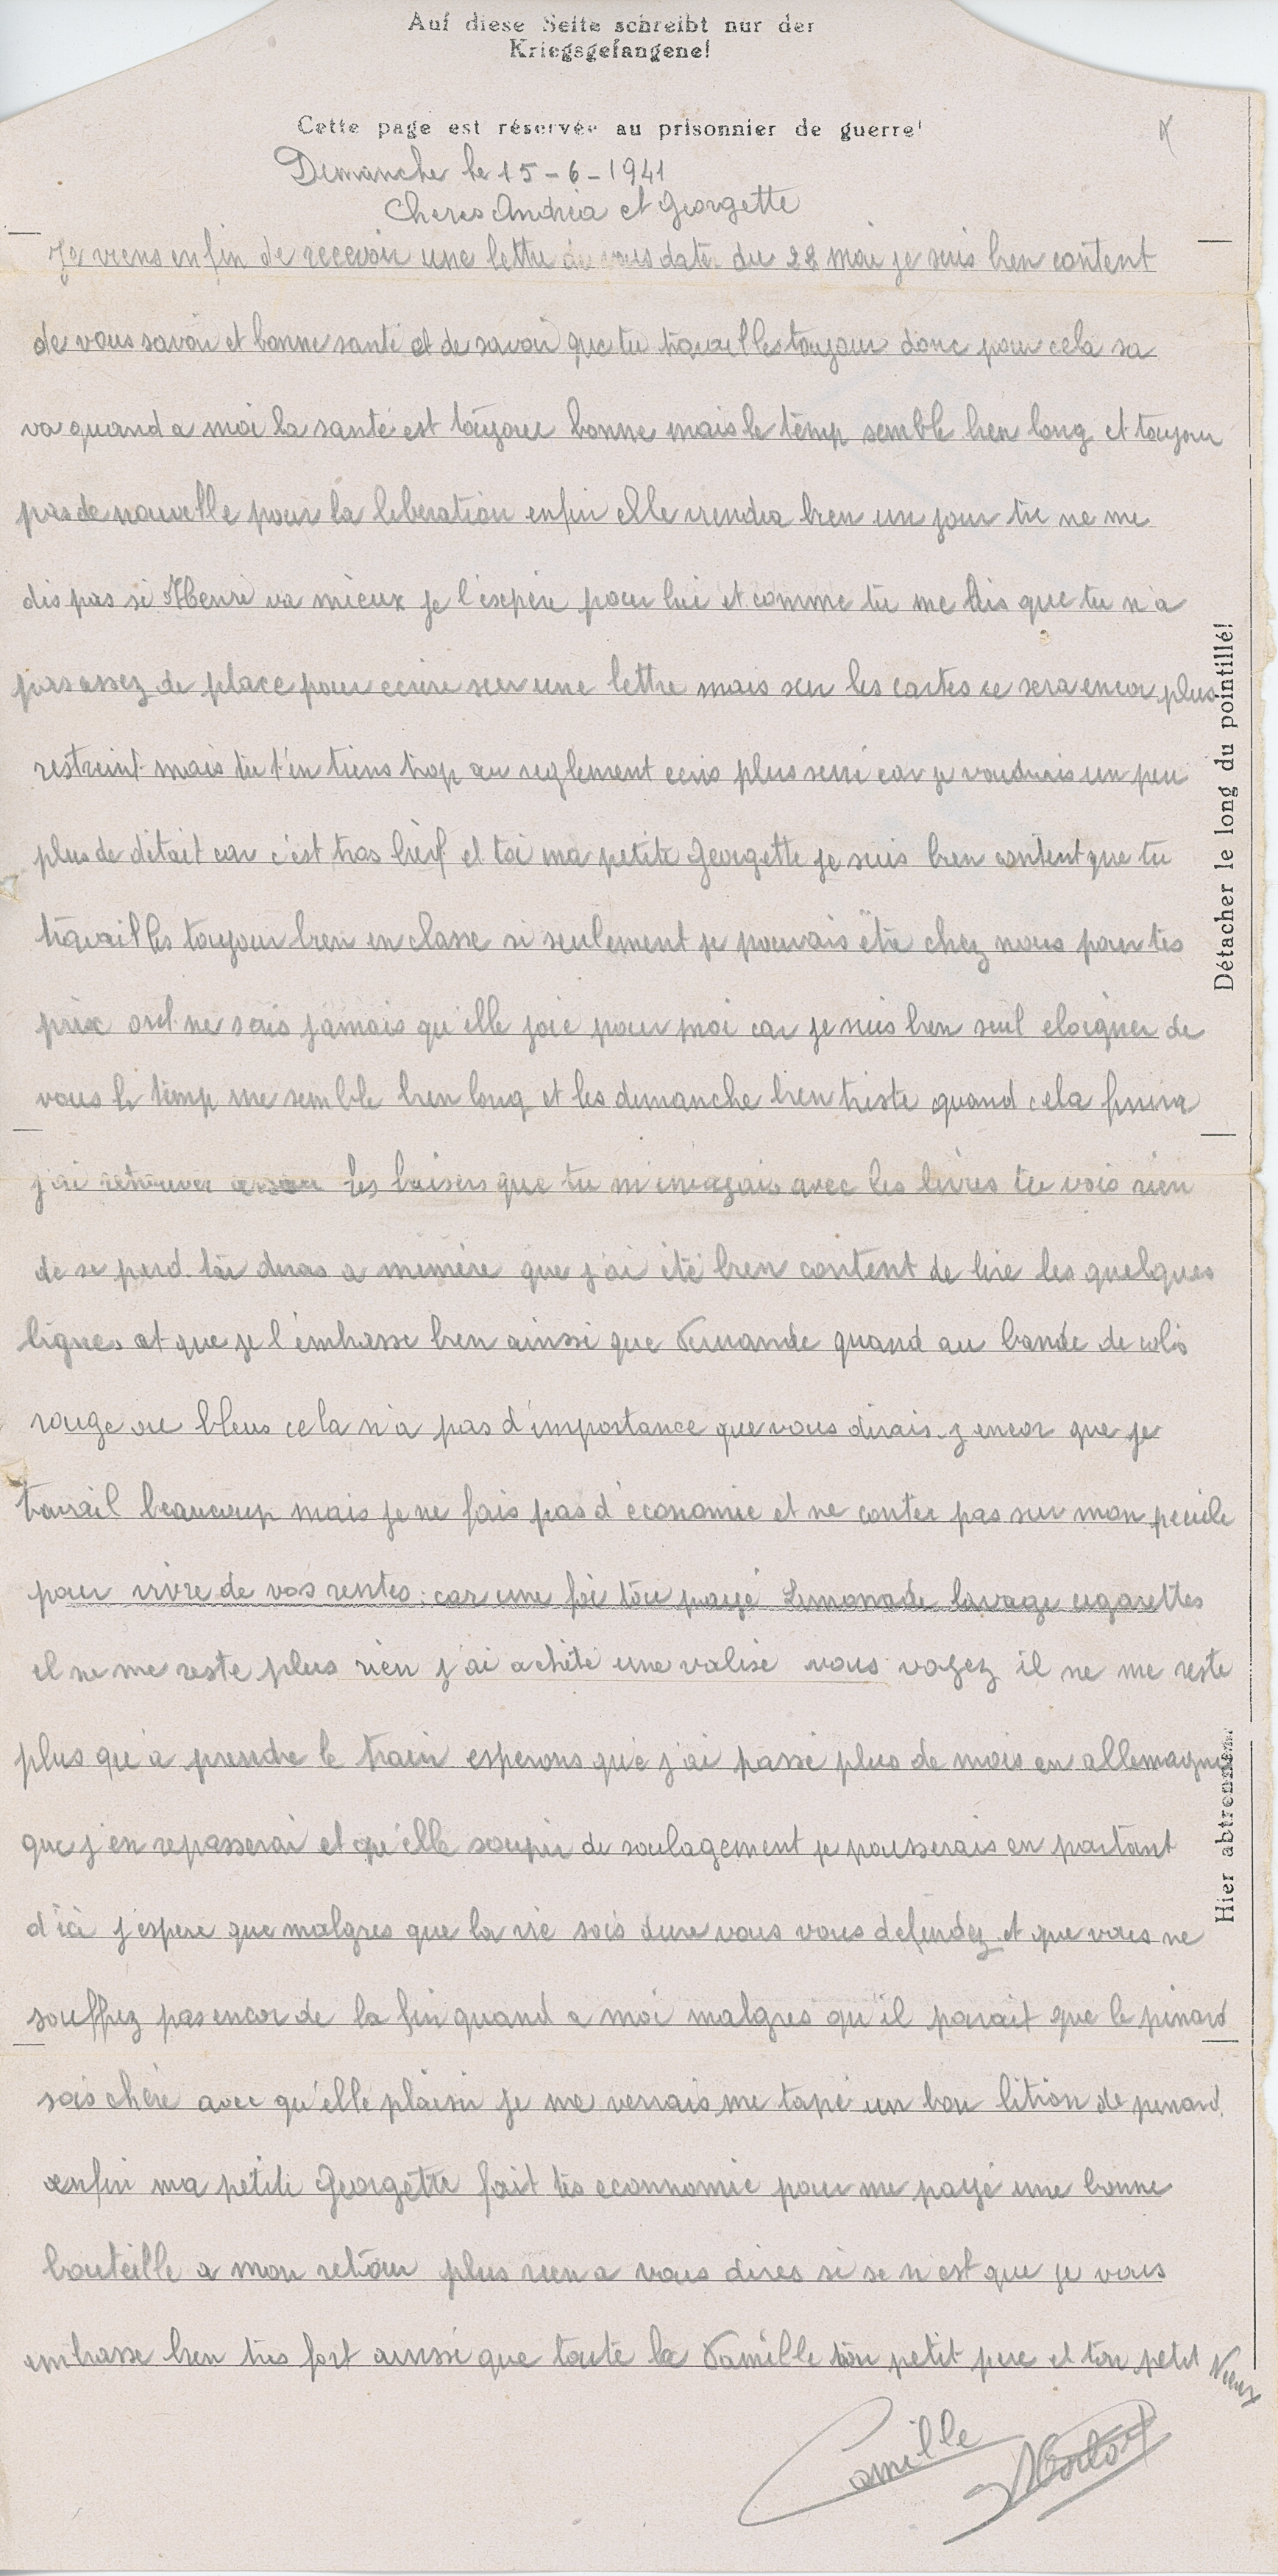 Auf diese Seite schreibt nur der
Kriegsgefangene!
Cette page est réservée au prisonnier de guerre!
Dimanche le 15-6-1941
Cheres Andréa et Georgette
Je viens enfin de recevoir une lettre de vous daté du 28 mai je suis bien content
de vous savoir et bonne santé et de savoir que tu travailles toujour donc pour cela sa
va quand a moi la santé est toujour bonne mais le temp semble bien long et toujour
pas de nouvelle pour la liberation enfin elle viendra bien un jour tu ne me
dis pas si Henri va mieux je l'éspère pour lui et comme tu me dis que tu n'a
pas assez de place pour ecrire sur une lettre mais sur les cartes ce sera encor plus
restreint mais tu t'en tiens trop au reglement ecris plus seré car je voudrais un peu
plus de détait car c'est tros brèf et toi ma petite Georgette je suis bien content que tu
travailles toujour bien en classe si seulement je pouvais être chez nous pour tes
prix on ne sais jamais qu'elle joie pour moi car je suis bien seul eloigner de
vous le temp me semble bien long et les dimanche bien triste quand cela finira
j'ai retrouver les baisers que tu m'envoyais avec les livres tu vois rien
de se perd. tu diras a mémère que j'ai été bien content de lire les quelques
lignes et que je l'embrasse bien ainsi que Fernande quand au bande de colis
rouge ou bleus cela n'a pas d'importance que vous dirais-j encor que je
travail beaucoup mais je ne fais pas d'économie et ne conter pas sur mon pecule
pour vivre de vos rentes: car une foi tou payé Limonade lavage cigarettes
il ne me reste plus rien j'ai achété une valise vous voyez il ne me reste
plus qu'a prendre le train esperons que j'ai passé plus de mois en allemagne
que j'en repasserai et qu'elle soupir de soulagement je pousserais en partant
d'ici j'espere que malgres que la vie sois dure vous vous defendez et que vous ne
souffrez pas encor de la fin quand a moi malgres qu'il parait que le pinard
sois chère avec qu'elle plaisir je me verrais me tapé un bon litron de pinard.
enfin ma petite Georgette fait tes econnomie pour me payé une bonne
bouteille a mon retour plus rien a vous dires si se n'est que je vous
embrasse bien tres fort ainssi que toute la Famille ton petit pere et ton petit Vieux
Camille
Détacher le long du pointillé!
Hier abtrennen!